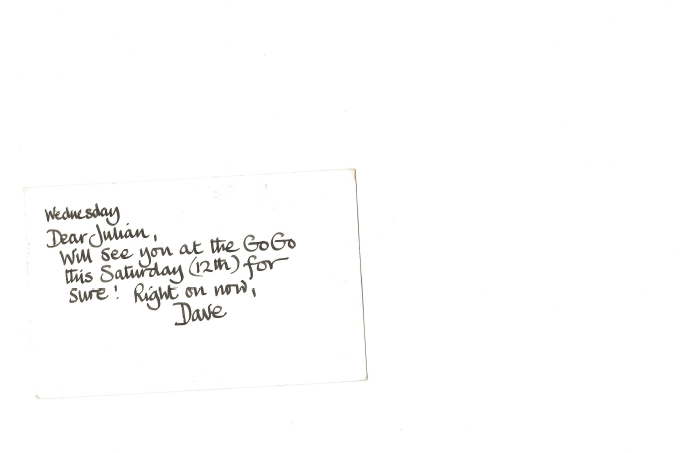 Wednesday
Dear Julian,
Will see you at the GoGo
this Saturday (12th) for
sure! Right on now,
Dave